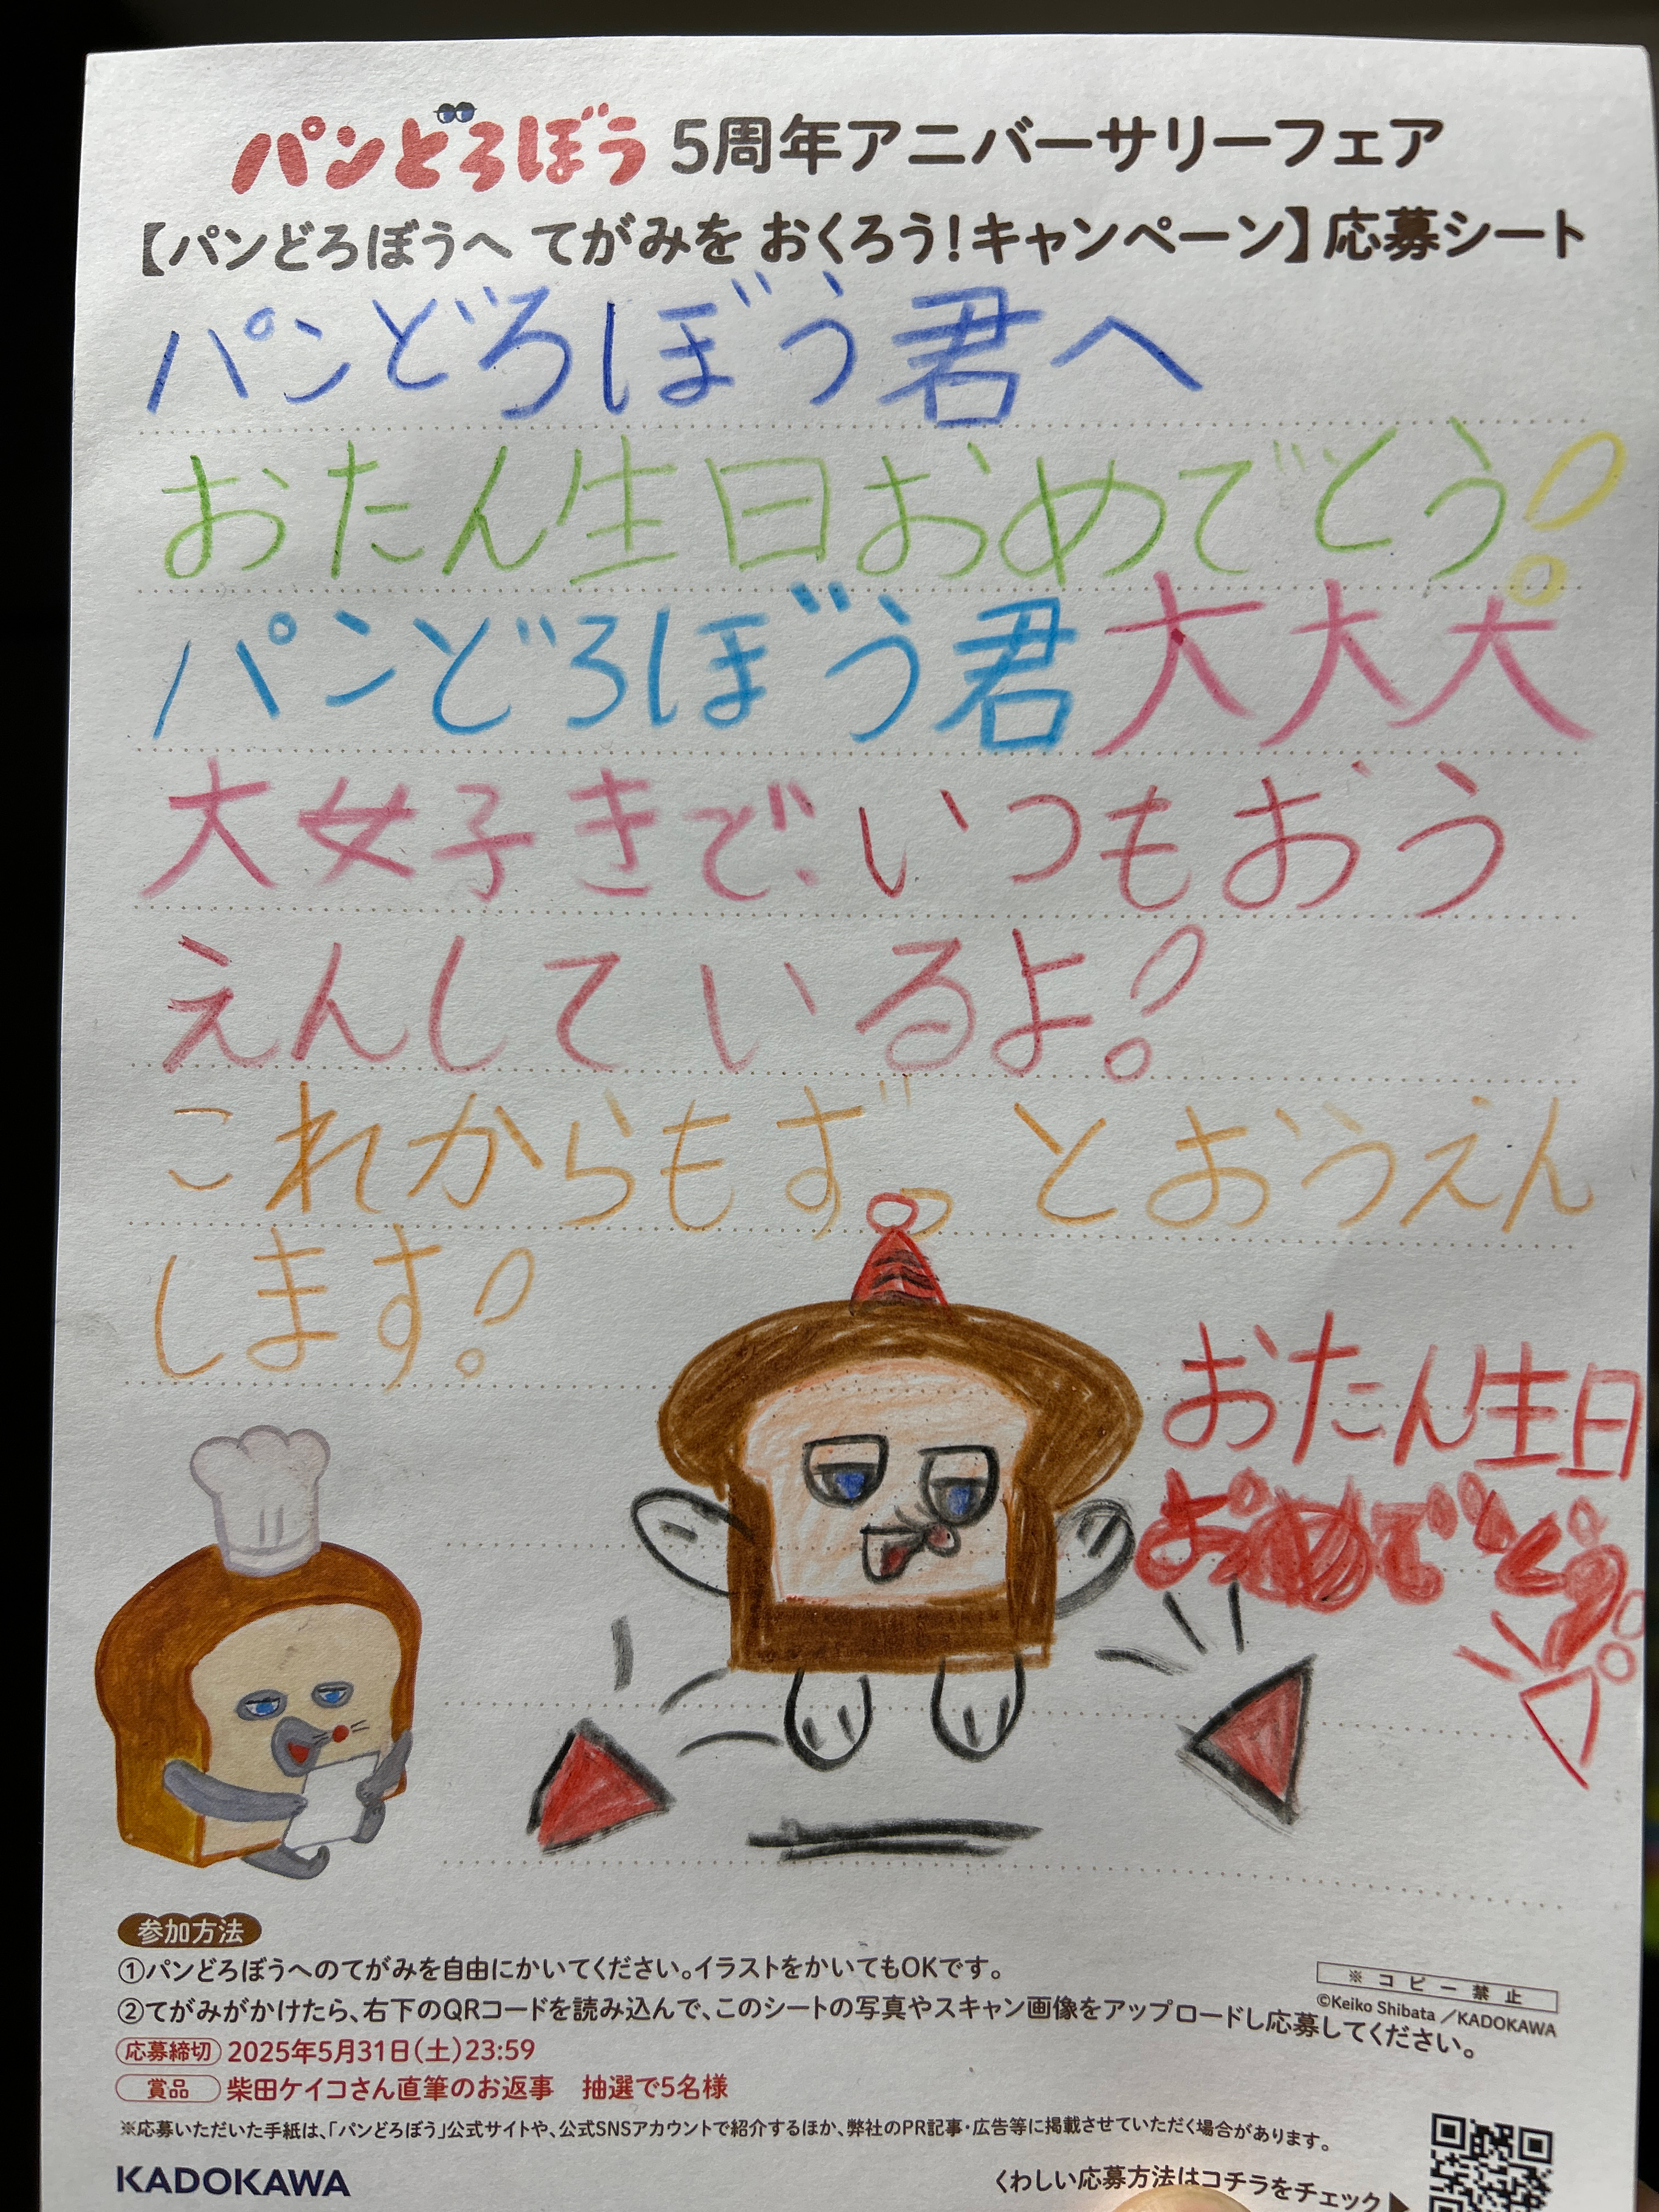 パンどろぼう 5周年アニバーサリーフェア
【パンどろぼうへ てがみを おくろう！キャンペーン】応募シート
パンどろぼう君へ
おたん生日おめでとう!
パンどろぼう君大大大
大好きで、いつもおう
えんしているよ!
これからもずっとおうえん
します!
おたん生日
おめでとう!
参加方法
①パンどろぼうへのてがみを自由にかいてください。イラストをかいてもOKです。
②てがみがかけたら、右下のQRコードを読み込んで、このシートの写真やスキャン画像をアップロードし応募してください。
※コピー禁止
©Keiko Shibata／KADOKAWA
応募締切 2025年5月31日（土）23:59
賞品 柴田ケイコさん直筆のお返事 抽選で5名様
※応募いただいた手紙は、「パンどろぼう」公式サイトや、公式SNSアカウントで紹介するほか、弊社のPR記事・広告等に掲載させていただく場合があります。
KADOKAWA
くわしい応募方法はコチラをチェック▶